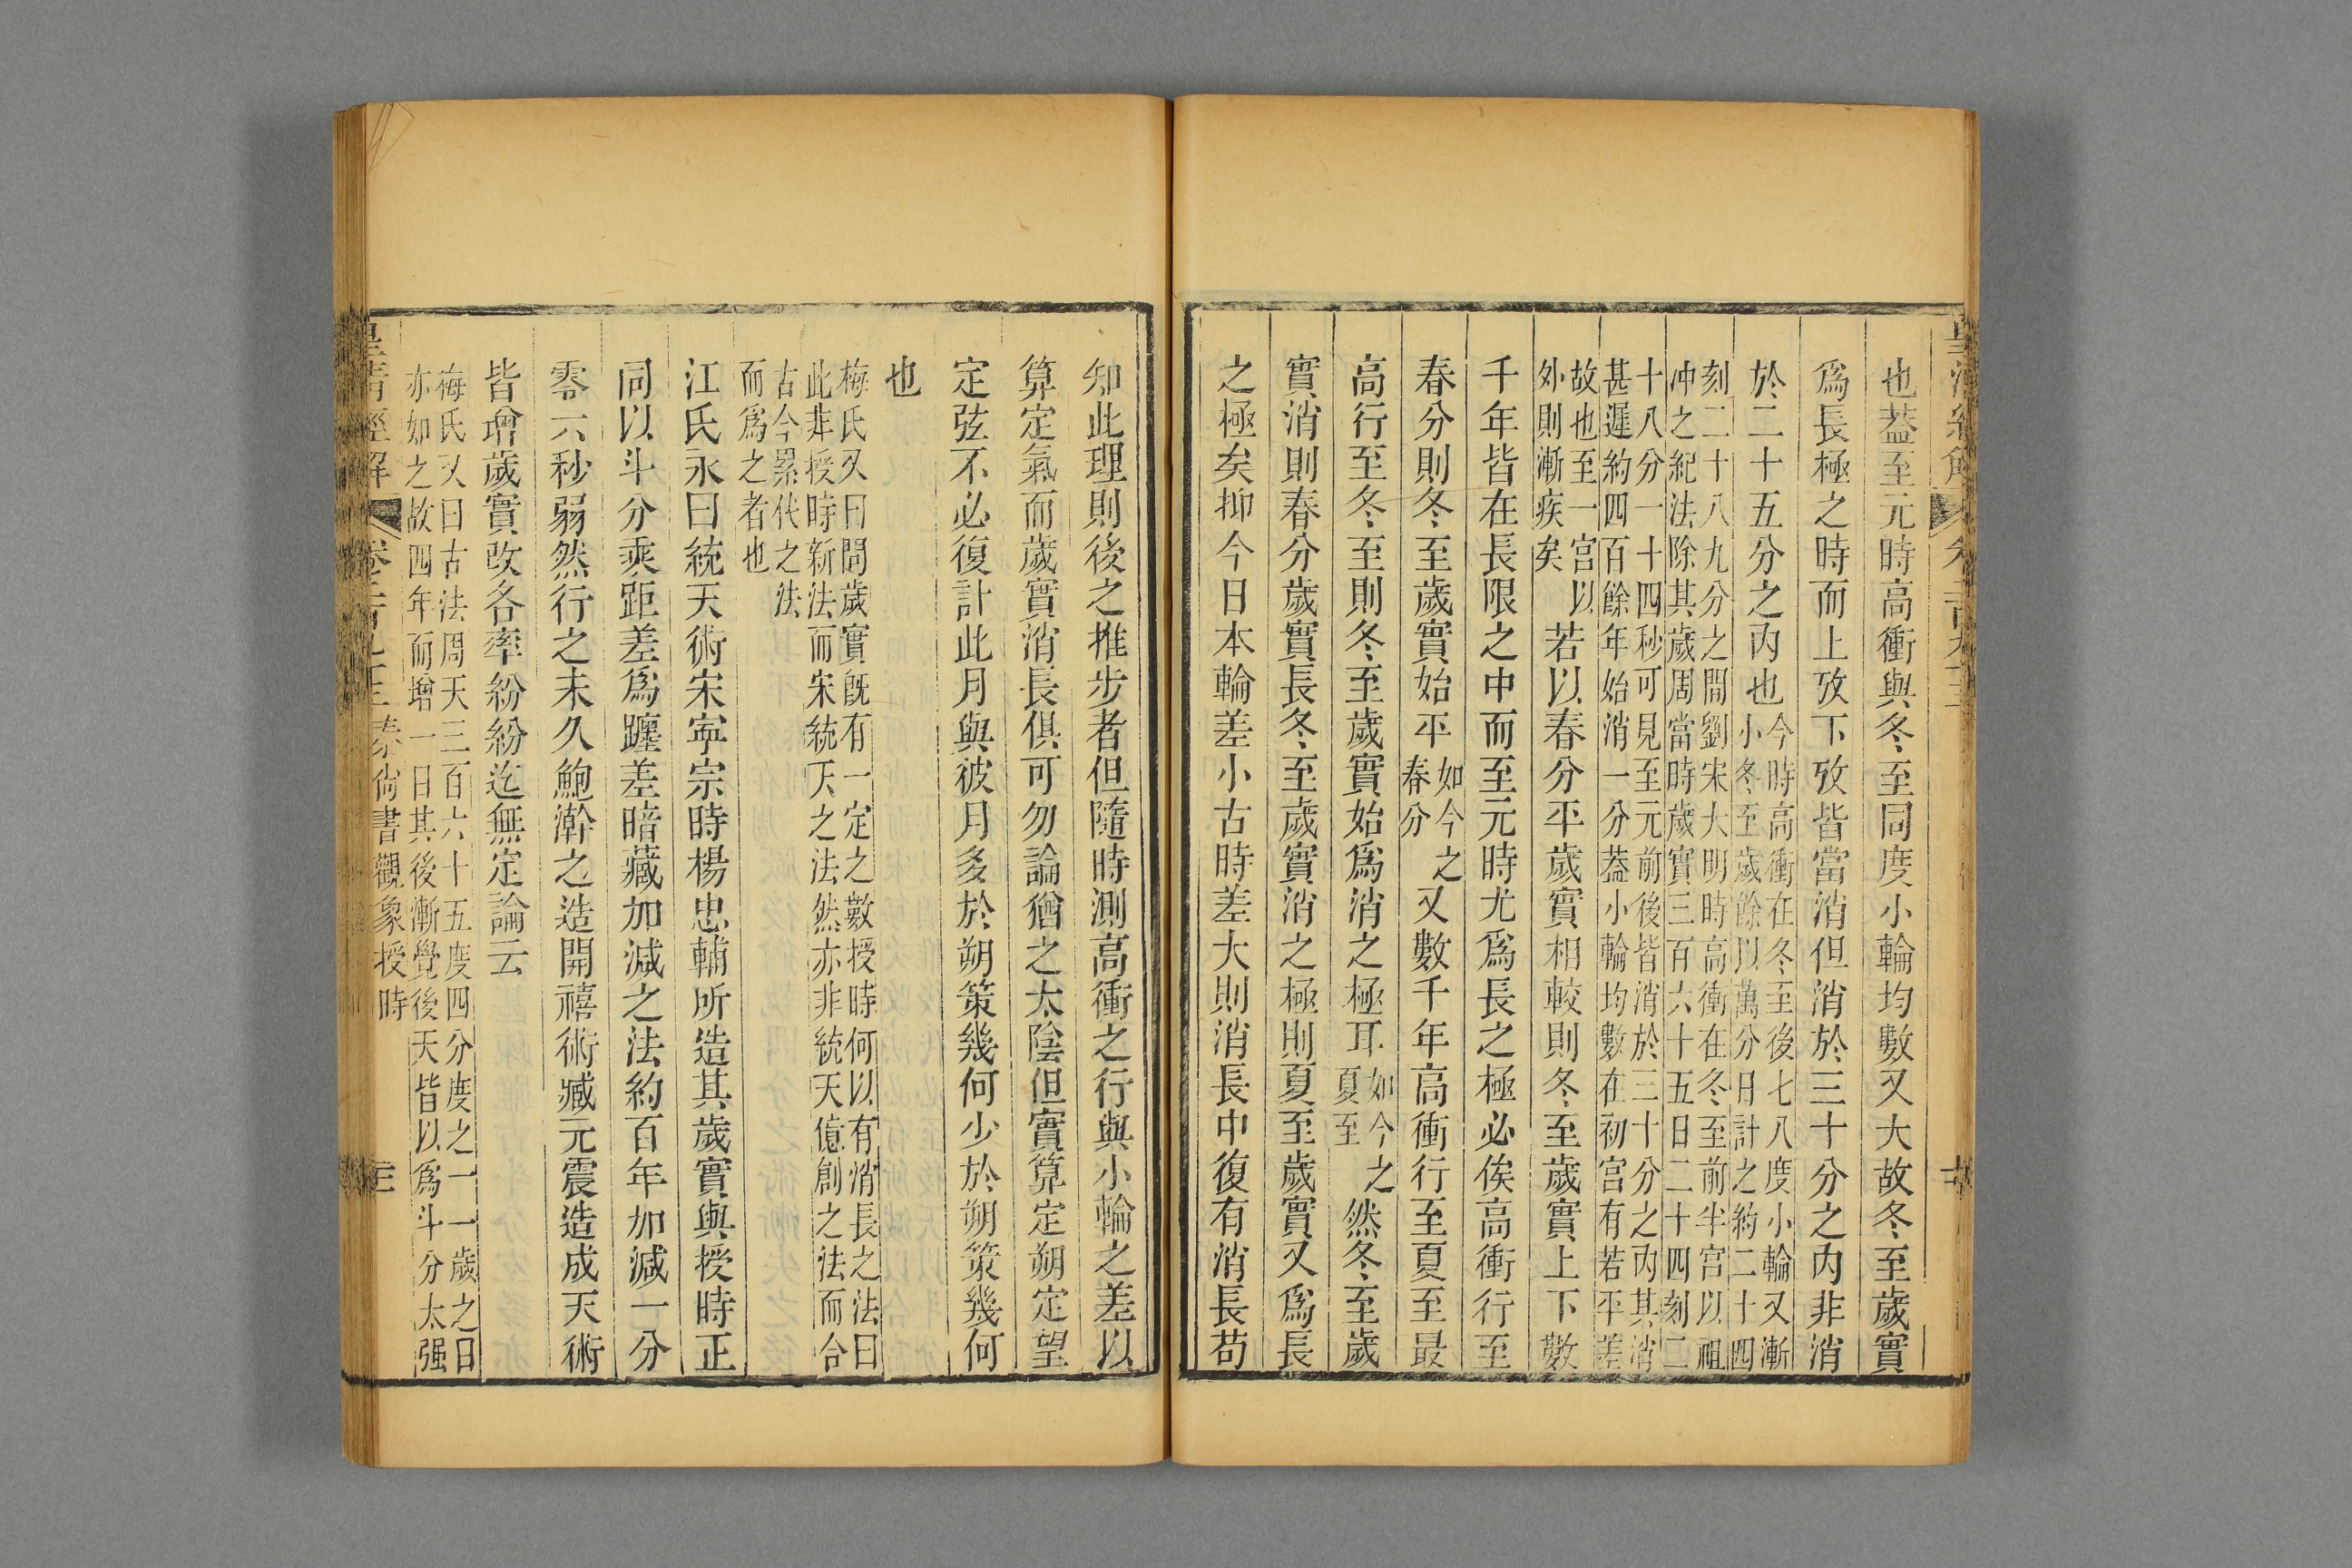 也蓋至元時高衝與冬至同度小輪均數又大故冬至歲實
爲長極之時而上攷下攷皆當消但消於三十分之內非消
於二十五分之內也今時高衝在冬至後七八度小輪又漸
小冬至歲餘以萬分日計之約二十四
刻二十八九分之間劉宋大明時高衝在冬至前半宮以祖
冲之紀法除其歲周當時歲實三百六十五日二十四刻二
十八分一十四秒可見至元前後皆消於三十分之內其消
甚遲約四百餘年始消一分蓋小輪均數在初宮有若平差
故也至一宮以
外則漸疾矣
若以春分平歲實相較則冬至歲實上下數
千年皆在長限之中而至元時尤爲長之極必俟高衝行至
春分則冬至歲實始平如今之
春分
又數千年高衝行至夏至最
高行至冬至則冬至歲實始爲消之極耳如今之
夏至
然冬至歲
實消則春分歲實長冬至歲實消之極則夏至歲實又爲長
之極矣抑今日本輪差小古時差大則消長中復有消長苟
知此理則後之推步者但隨時測高衝之行與小輪之差以
算定氣而歲實消長俱可勿論猶之太陰但實算定朔定望
定弦不必復計此月與彼月多於朔策幾何少於朔策幾何
也
梅氏又曰問歲實旣有一定之數授時何以有消長之法曰
此非授時新法而宋統天之法然亦非統天億創之法而合
古今累代之法
而爲之者也
江氏永曰統天術宋寧宗時楊忠輔所造其歲實與授時正
同以斗分乘距差爲躔差暗藏加減之法約百年加減一分
零六秒弱然行之未久鮑澣之造開禧術臧元震造成天術
皆增歲實改各率紛紛迄無定論云
梅氏又曰古法周天三百六十五度四分度之一一歲之日
亦如之故四年而增一日其後漸覺後天皆以爲斗分太强
皇淸經解 秦尙書觀象授時